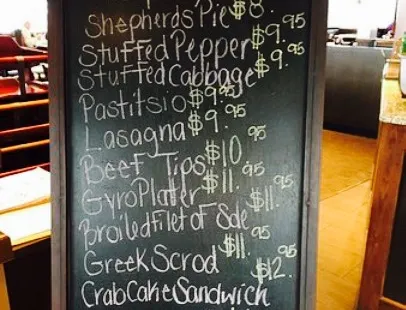 Shepherds Pie $8.
Stuffed Pepper $9.95
Stuffed Cabbage $9.95
Pastitsio $9.95
Lasagna $9.95
Beef Tips $10.95
Gyro Plater $11.95
Broiled Filet of Sole $11.95
Greek Scrod $11.95
Crab Cake Sandwich $12.95